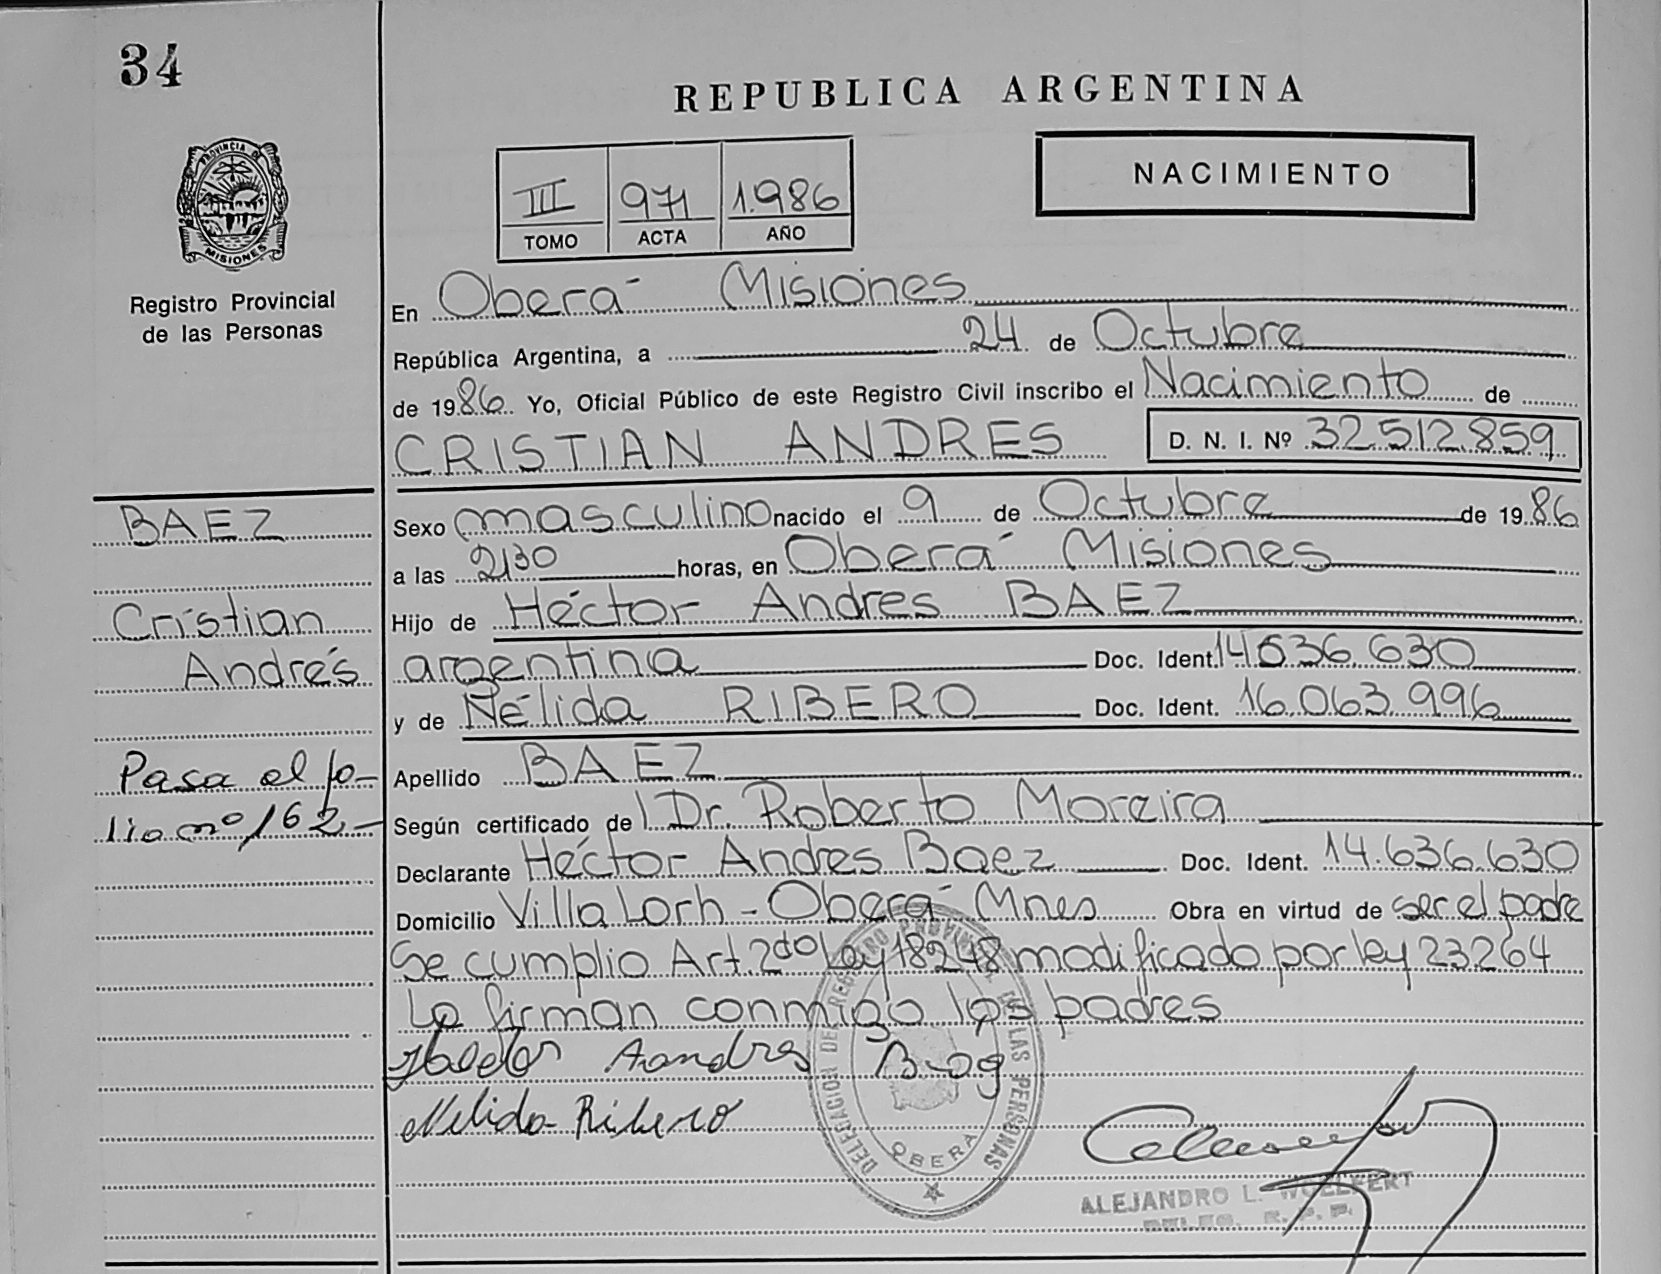 34
REPUBLICA ARGENTINA
PROVINCIA DE
MISIONES
Registro Provincial
de las Personas
III 971 1.986
TOMO ACTA AÑO
NACIMIENTO
En Oberá Misiones
República Argentina, a 24 de Octubre
de 1986 Yo, Oficial Público de este Registro Civil inscribo el Nacimiento de
CRISTIAN ANDRES D. N. I. Nº 32.512.859
BAEZ
Cristian
Andrés
Pasa al fo-
lio nº 162.-
Sexo masculino nacido el 9 de Octubre de 1986
a las 2,30 horas, en Oberá Misiones
Hijo de Héctor Andres BAEZ
argentina Doc. Ident. 14.636.630
y de Nélida RIBERO Doc. Ident. 16.063.996
Apellido BAEZ
Según certificado del Dr. Roberto Moreira
Declarante Héctor Andres Baez Doc. Ident. 14.636.630
Domicilio Villa Lorh - Oberá Mnes Obra en virtud de ser el padre
Se cumplio Art. 2do Ley 18248 modificado por ley 23264
Lo firman conmigo los padres
Andres
Nelida Ribero
DELEGACION DEL REGISTRO PROVINCIAL DE LAS PERSONAS
OBERA
ALEJANDRO L. WOELFERT
DELEG. R. P. P.